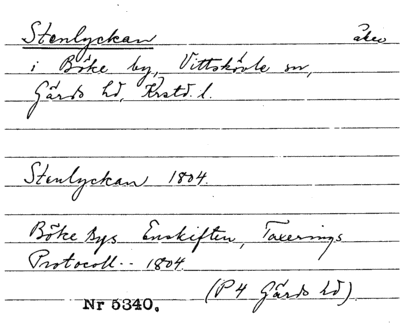 Stenlyckan åker
i Böke by, Vittskövle sn,
Gärds hd, Krstd. l.
Stenlyckan 1804.
Böke Bys Enskiften, Taxerings
Protocoll -- 1804.
(P4 Gärds hd)
Nr 5340.